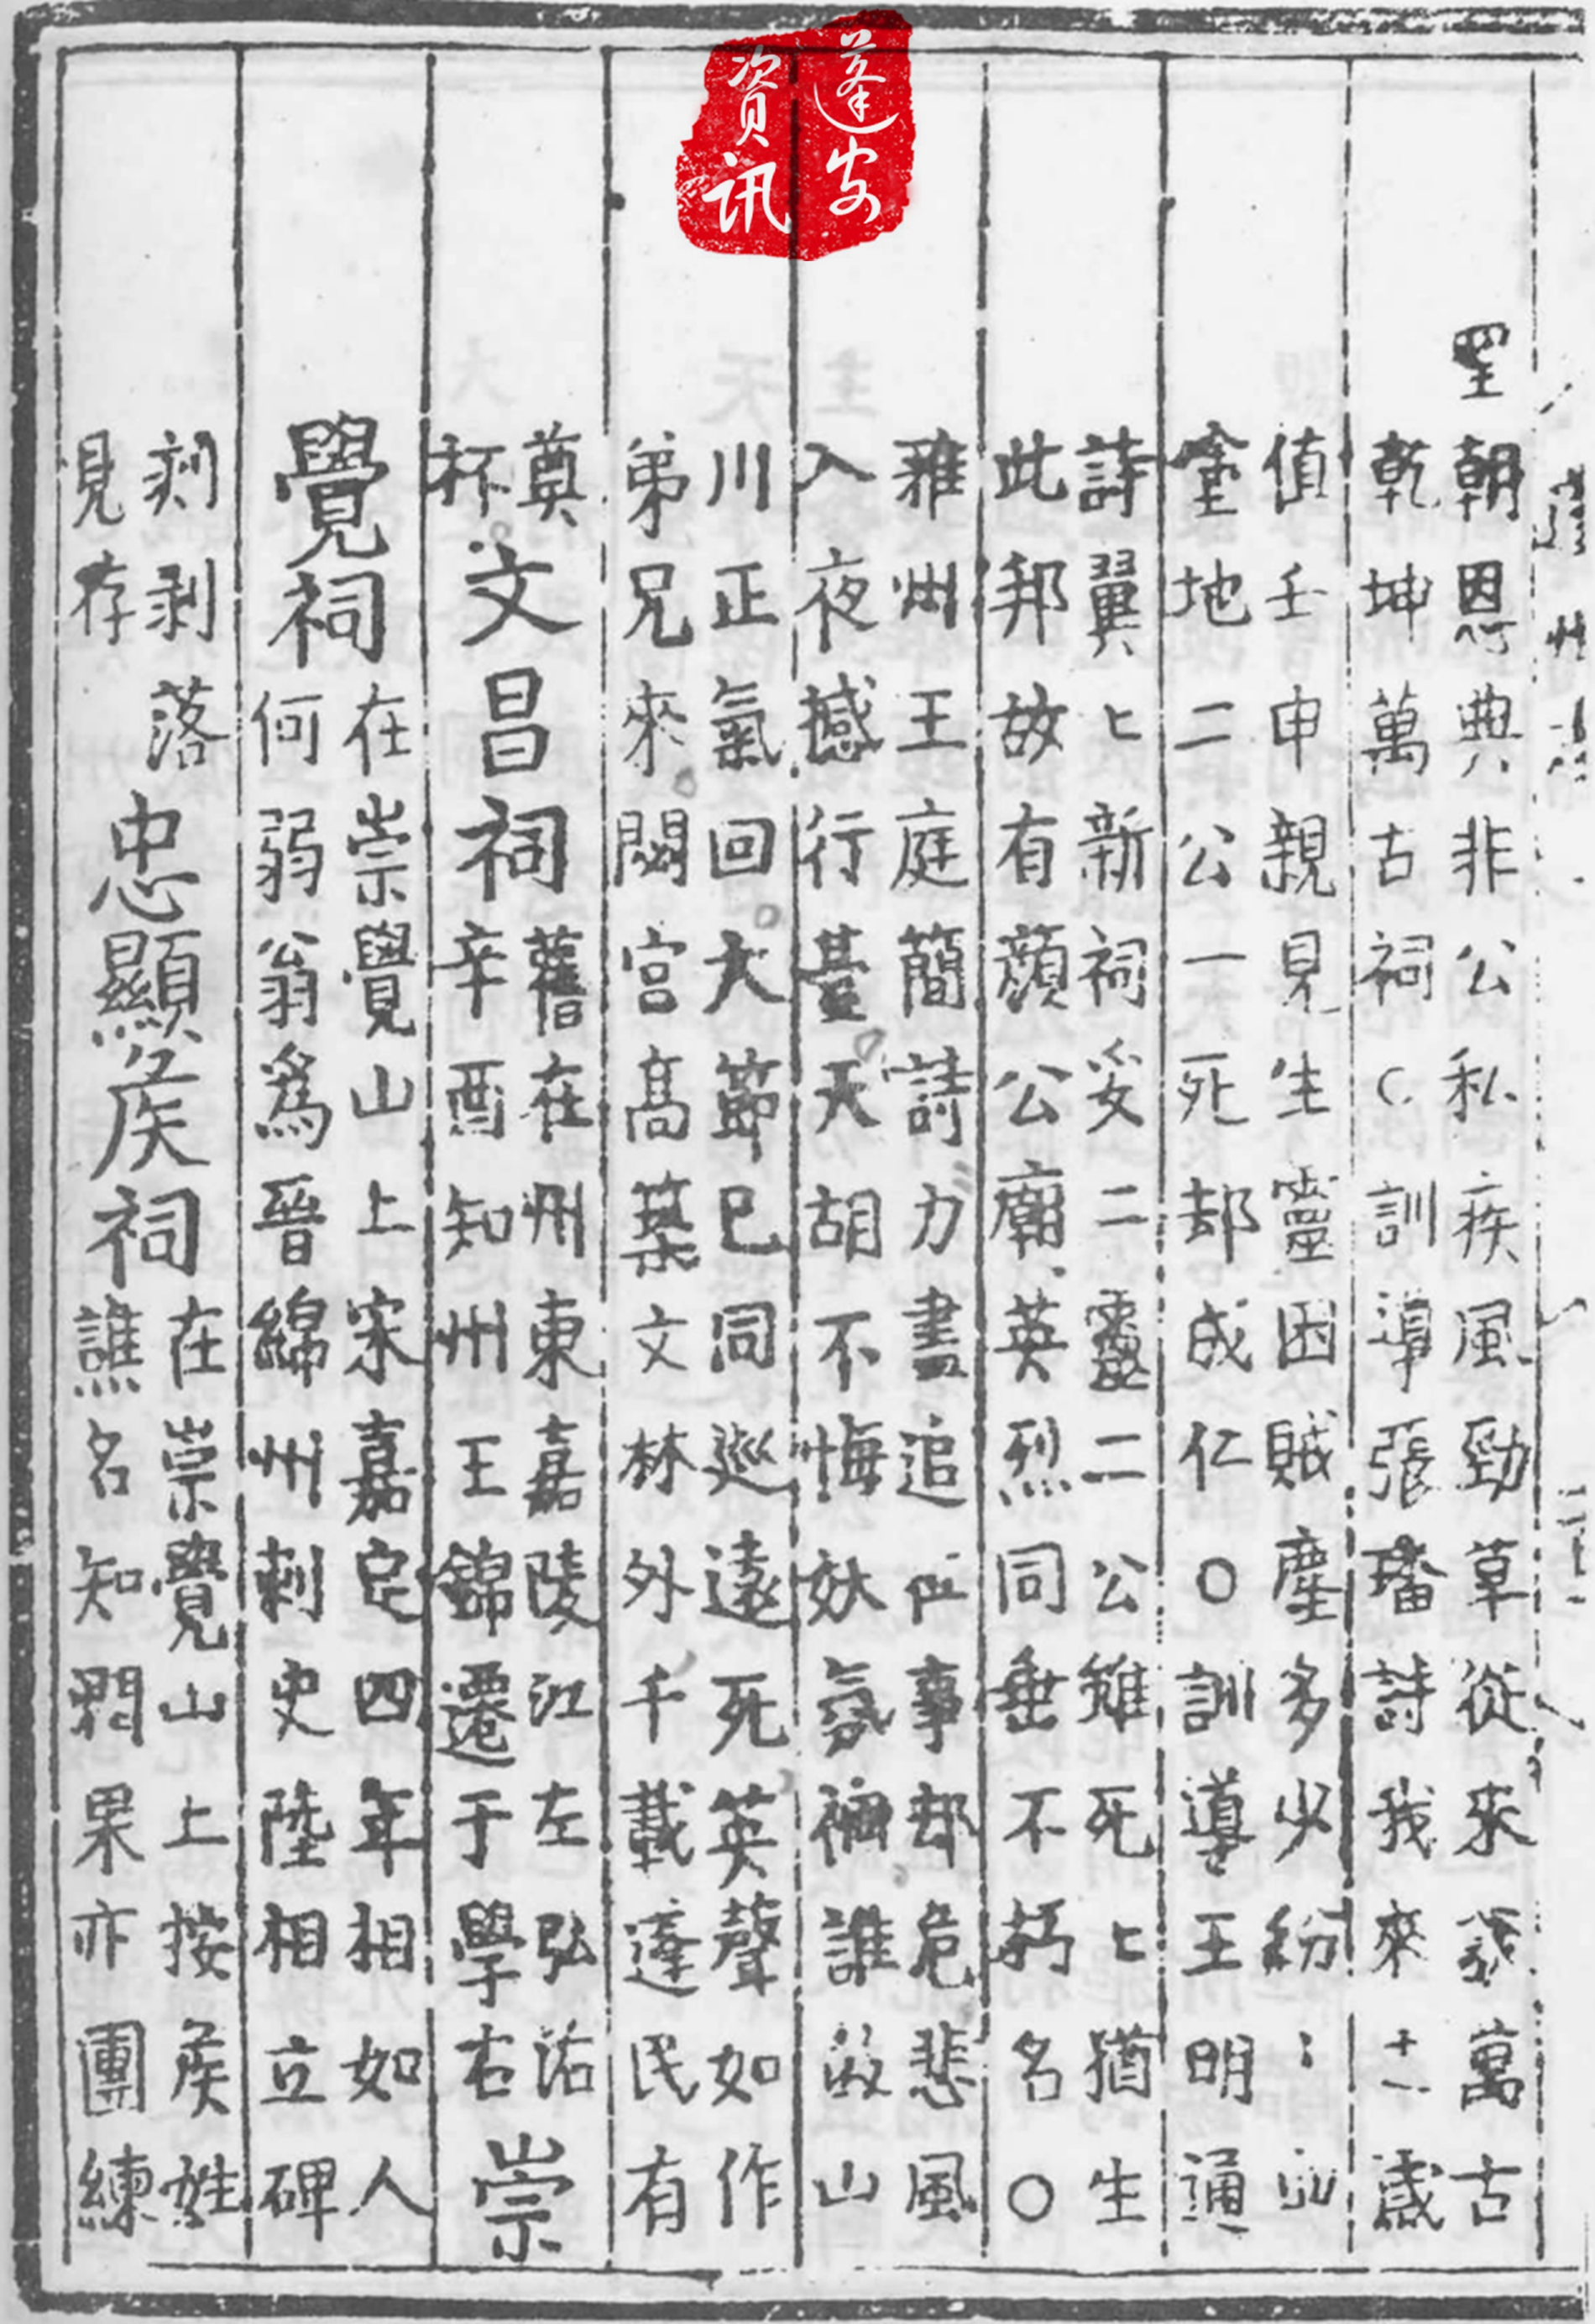 蓬安
資訊
聖
朝恩典非公私疾風勁草從來發萬古
乾坤萬古祠○訓導張璠詩我來歲
值壬申親見生靈困賊塵多少紛
金地二公一死却成仁○訓導王明通
詩翼匕新祠妥二靈二公雖死匕猶生
此邦故有顔公廟英烈同垂不朽名○
雅州王庭簡詩力盡追事却危悲風
入夜撼行臺天胡不悔妖氛禍誰山
川正氣回大節已同巡遠死英聲如作
弟兄來閟宮髙築文林外千載逢民有
奠
杯
文昌祠
舊在州東嘉陵江左弘治
辛酉知州王錦遷于學右
崇
覺祠
在崇覺山上宋嘉定四年相如人
何弱翁爲晉綿州刺史陸相立碑
刻剥落
見存
忠顯矦祠
在崇覺山上按矦姓
譙名知閬果亦團練